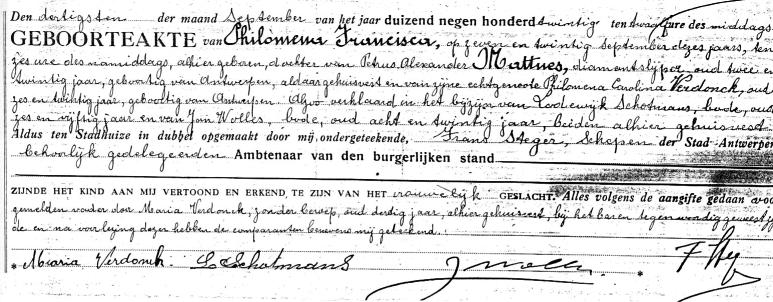 Den dertigsten der maand September van het jaar duizend negen honderd twintig ten twaalf ure des middags
GEBOORTEAKTE van Philomena Francisca, op zeven en twintig September dezes jaars, ten
zes ure des namiddags, alhier geboren, dochter van Petrus Alexander Mattues, diamantslijper, oud twee en
twintig jaar, geboortig van Antwerpen, aldaar gehuisvest en van zijne echtgenoote Philomena Carolina Verdonck, oud
zes en twintig jaar, geboortig van Antwerpen. Alzoo verklaard in het bijzijn van Lodewijk Schotmans, bode, oud
zes en vijftig jaar en van Jan Wolles, bode, oud acht en twintig jaar, beiden alhier gehuisvest
Aldus ten Stadhuize in dubbel opgemaakt door mij, ondergeteekende, Frans Steger, Schepen der Stad Antwerpen
behoorlijk gedelegeerden Ambtenaar van den burgerlijken stand
ZIJNDE HET KIND AAN MIJ VERTOOND EN ERKEND, TE ZIJN VAN HET vrouwelijk GESLACHT. Alles volgens de aangifte gedaan
gemelden vader door Maria Verdonck, zonder beroep, oud dertig jaar, alhier gehuisvest, bij het baren tegenwoordig geweest
de en na voorlezing dezer hebben de comparanten benevens mij geteekend.
* Maria Verdonck. L. Schotmans